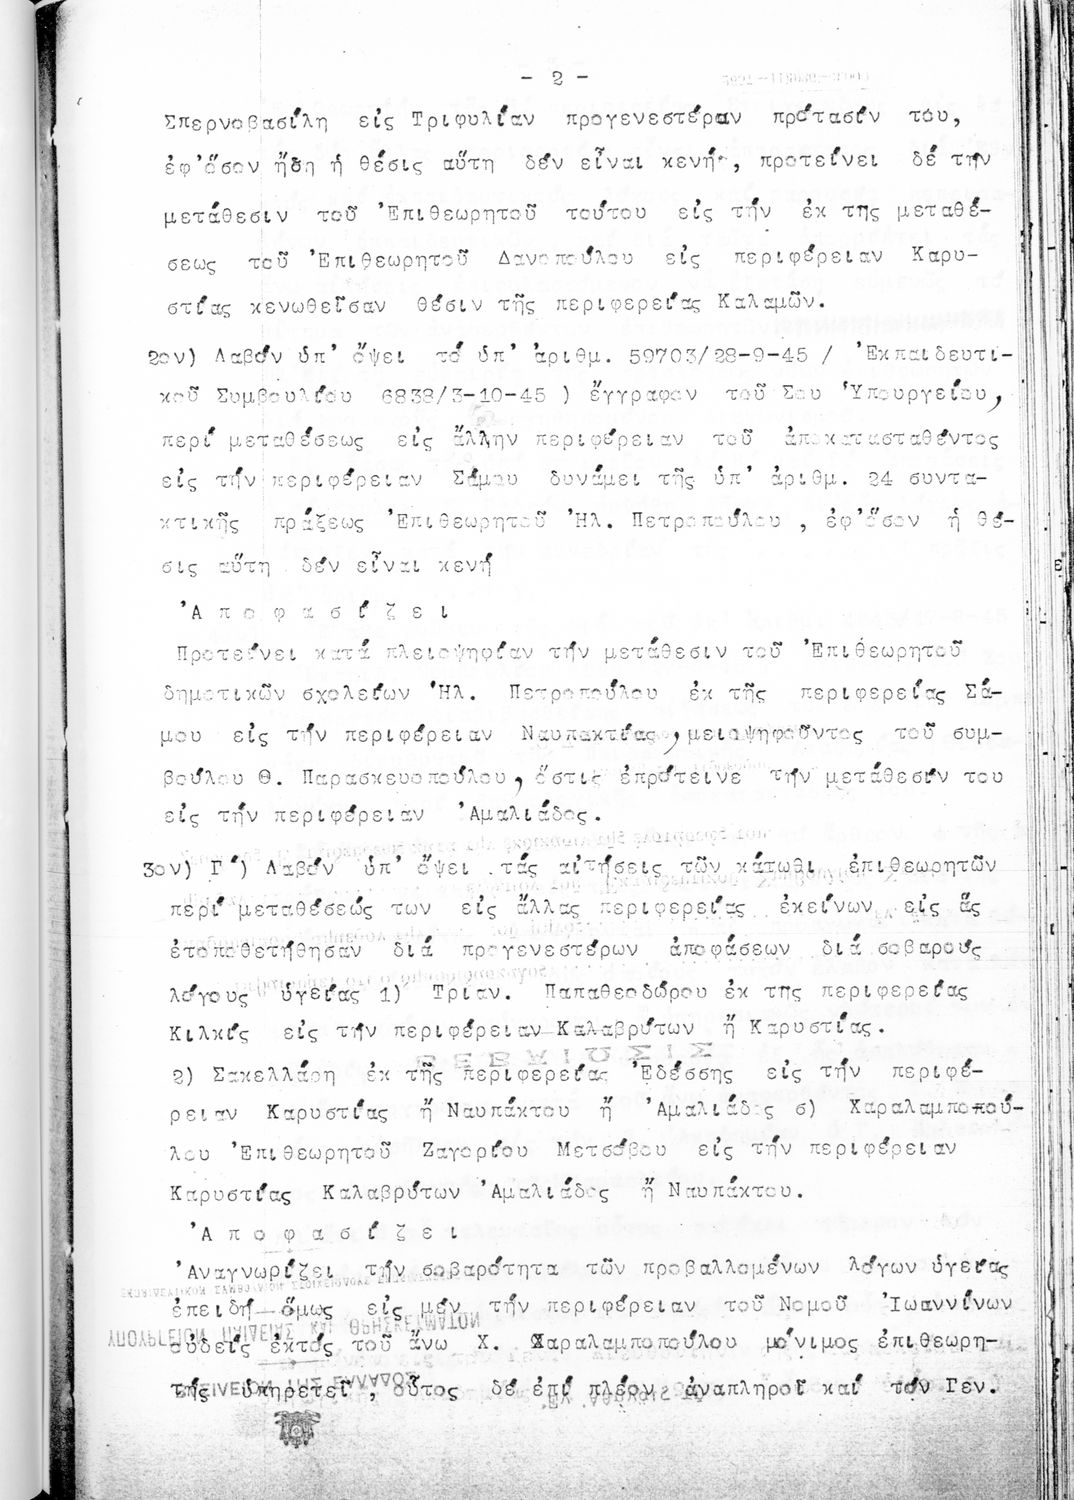 - 2 -
Σπερνοβασίλη εἰς Τριφυλίαν προγενεστέραν πρότασίν του,
ἐφ'ὅσον ἤδη ἡ θέσις αὕτη δέν εἶναι κενή, προτείνει δέ τήν
μετάθεσιν τοῦ Ἐπιθεωρητοῦ τούτου εἰς τήν ἐκ της μεταθέ-
σεως τοῦ Ἐπιθεωρητοῦ Δανοπούλου εἰς περιφέρειαν Καρυ-
στίας κενωθεῖσαν θέσιν τῆς περιφερείας Καλαμῶν.
2ον) Λαβόν ὑπ' ὄψει τό ὑπ' ἀριθμ. 59703/28-9-45 / Ἐκπαιδευτι-
κοῦ Συμβουλίου 6838/3-10-45 ) ἔγγραφον τοῦ Σου Ὑπουργείου,
περί μεταθέσεως εἰς ἄλλην περιφέρειαν τοῦ ἀποκατασταθέντος
εἰς τήν περιφέρειαν Σάμου δυνάμει τῆς ὑπ' ἀριθμ. 24 συντα-
κτικῆς πράξεως Ἐπιθεωρητοῦ Ἠλ. Πετροπούλου , ἐφ'ὅσον ἡ θέ-
σις αὕτη δέν εἶναι κενή
Ἀ π ο φ α σ ί ζ ε ι
Προτείνει κατά πλειοψηφίαν τήν μετάθεσιν τοῦ Ἐπιθεωρητοῦ
δημοτικῶν σχολείων Ἠλ. Πετροπούλου ἐκ τῆς περιφερείας Σά-
μου εἰς τήν περιφέρειαν Ναυπακτίας, μειοψηφοῦντος τοῦ συμ-
βούλου Θ. Παρασκευοπούλου, ὅστις ἐπρότεινε τήν μετάθεσίν του
εἰς τήν περιφέρειαν Ἀμαλιάδος.
3ον) Γ') Λαβόν ὑπ' ὄψει τάς αἰτήσεις τῶν κάτωθι ἐπιθεωρητῶν
περί μεταθέσεώς των εἰς ἄλλας περιφερείας ἐκείνων εἰς ἅς
ἐτοποθετήθησαν διά προγενεστέρων ἀποφάσεων διά σοβαρούς
λόγους ὑγείας 1) Τριαν. Παπαθεοδώρου ἐκ της περιφερείας
Κιλκίς εἰς τήν περιφέρειαν Καλαβρύτων ἤ Καρυστίας.
2) Σακελλάρη ἐκ τῆς περιφερείας Ἐδέσσης εἰς τήν περιφέ-
ρειαν Καρυστίας ἤ Ναυπάκτου ἤ Ἀμαλιάδος σ) Χαραλαμποπού-
λου Ἐπιθεωρητοῦ Ζαγορίου Μετσόβου εἰς τήν περιφέρειαν
Καρυστίας Καλαβρύτων Ἀμαλιάδος ἤ Ναυπάκτου.
Ἀ π ο φ α σ ί ζ ε ι
Ἀναγνωρίζει τήν σοβαρότητα τῶν προβαλλομένων λόγων ὑγείας
ἐπειδή ὅμως εἰς μέν τήν περιφέρειαν τοῦ Νομοῦ Ἰωαννίνων
οὐδείς ἐκτός τοῦ ἄνω Χ. Χαραλαμποπούλου μόνιμος ἐπιθεωρη-
τής ὑπηρετεῖ , οὗτος δέ ἐπί πλέον ἀναπληροῖ καί τόν Γεν.